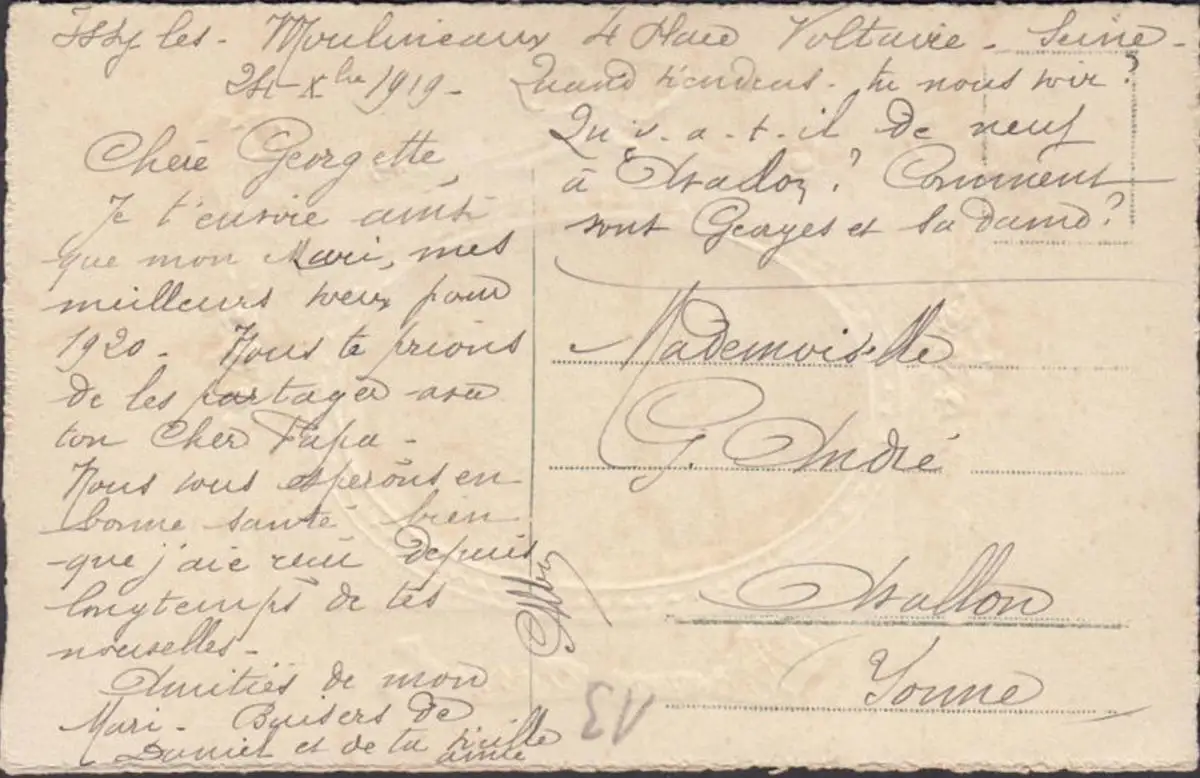 Issy les - Moulineaux 4 Place Voltaire - Seine -
24 Xbre 1919 -
Chère Georgette,
Je t'envoie ainsi
que mon Mari, mes
meilleurs voeux pour
1920 - Nous te prions
de les partager avec
ton Cher Papa -
Nous vous espérons en
bonne santé bien
que j'aie rien depuis
longtemps de tes
nouvelles -
Amitiés de mon
Mari - Baisers de
Daniel et de ta vieille
amie
Quand viendras-tu nous voir?
Qu'y-a-t-il de neuf
à Avallon? Comment
sont Georges et sa dame?
Mademoiselle
G. André
Avallon
Yonne
13